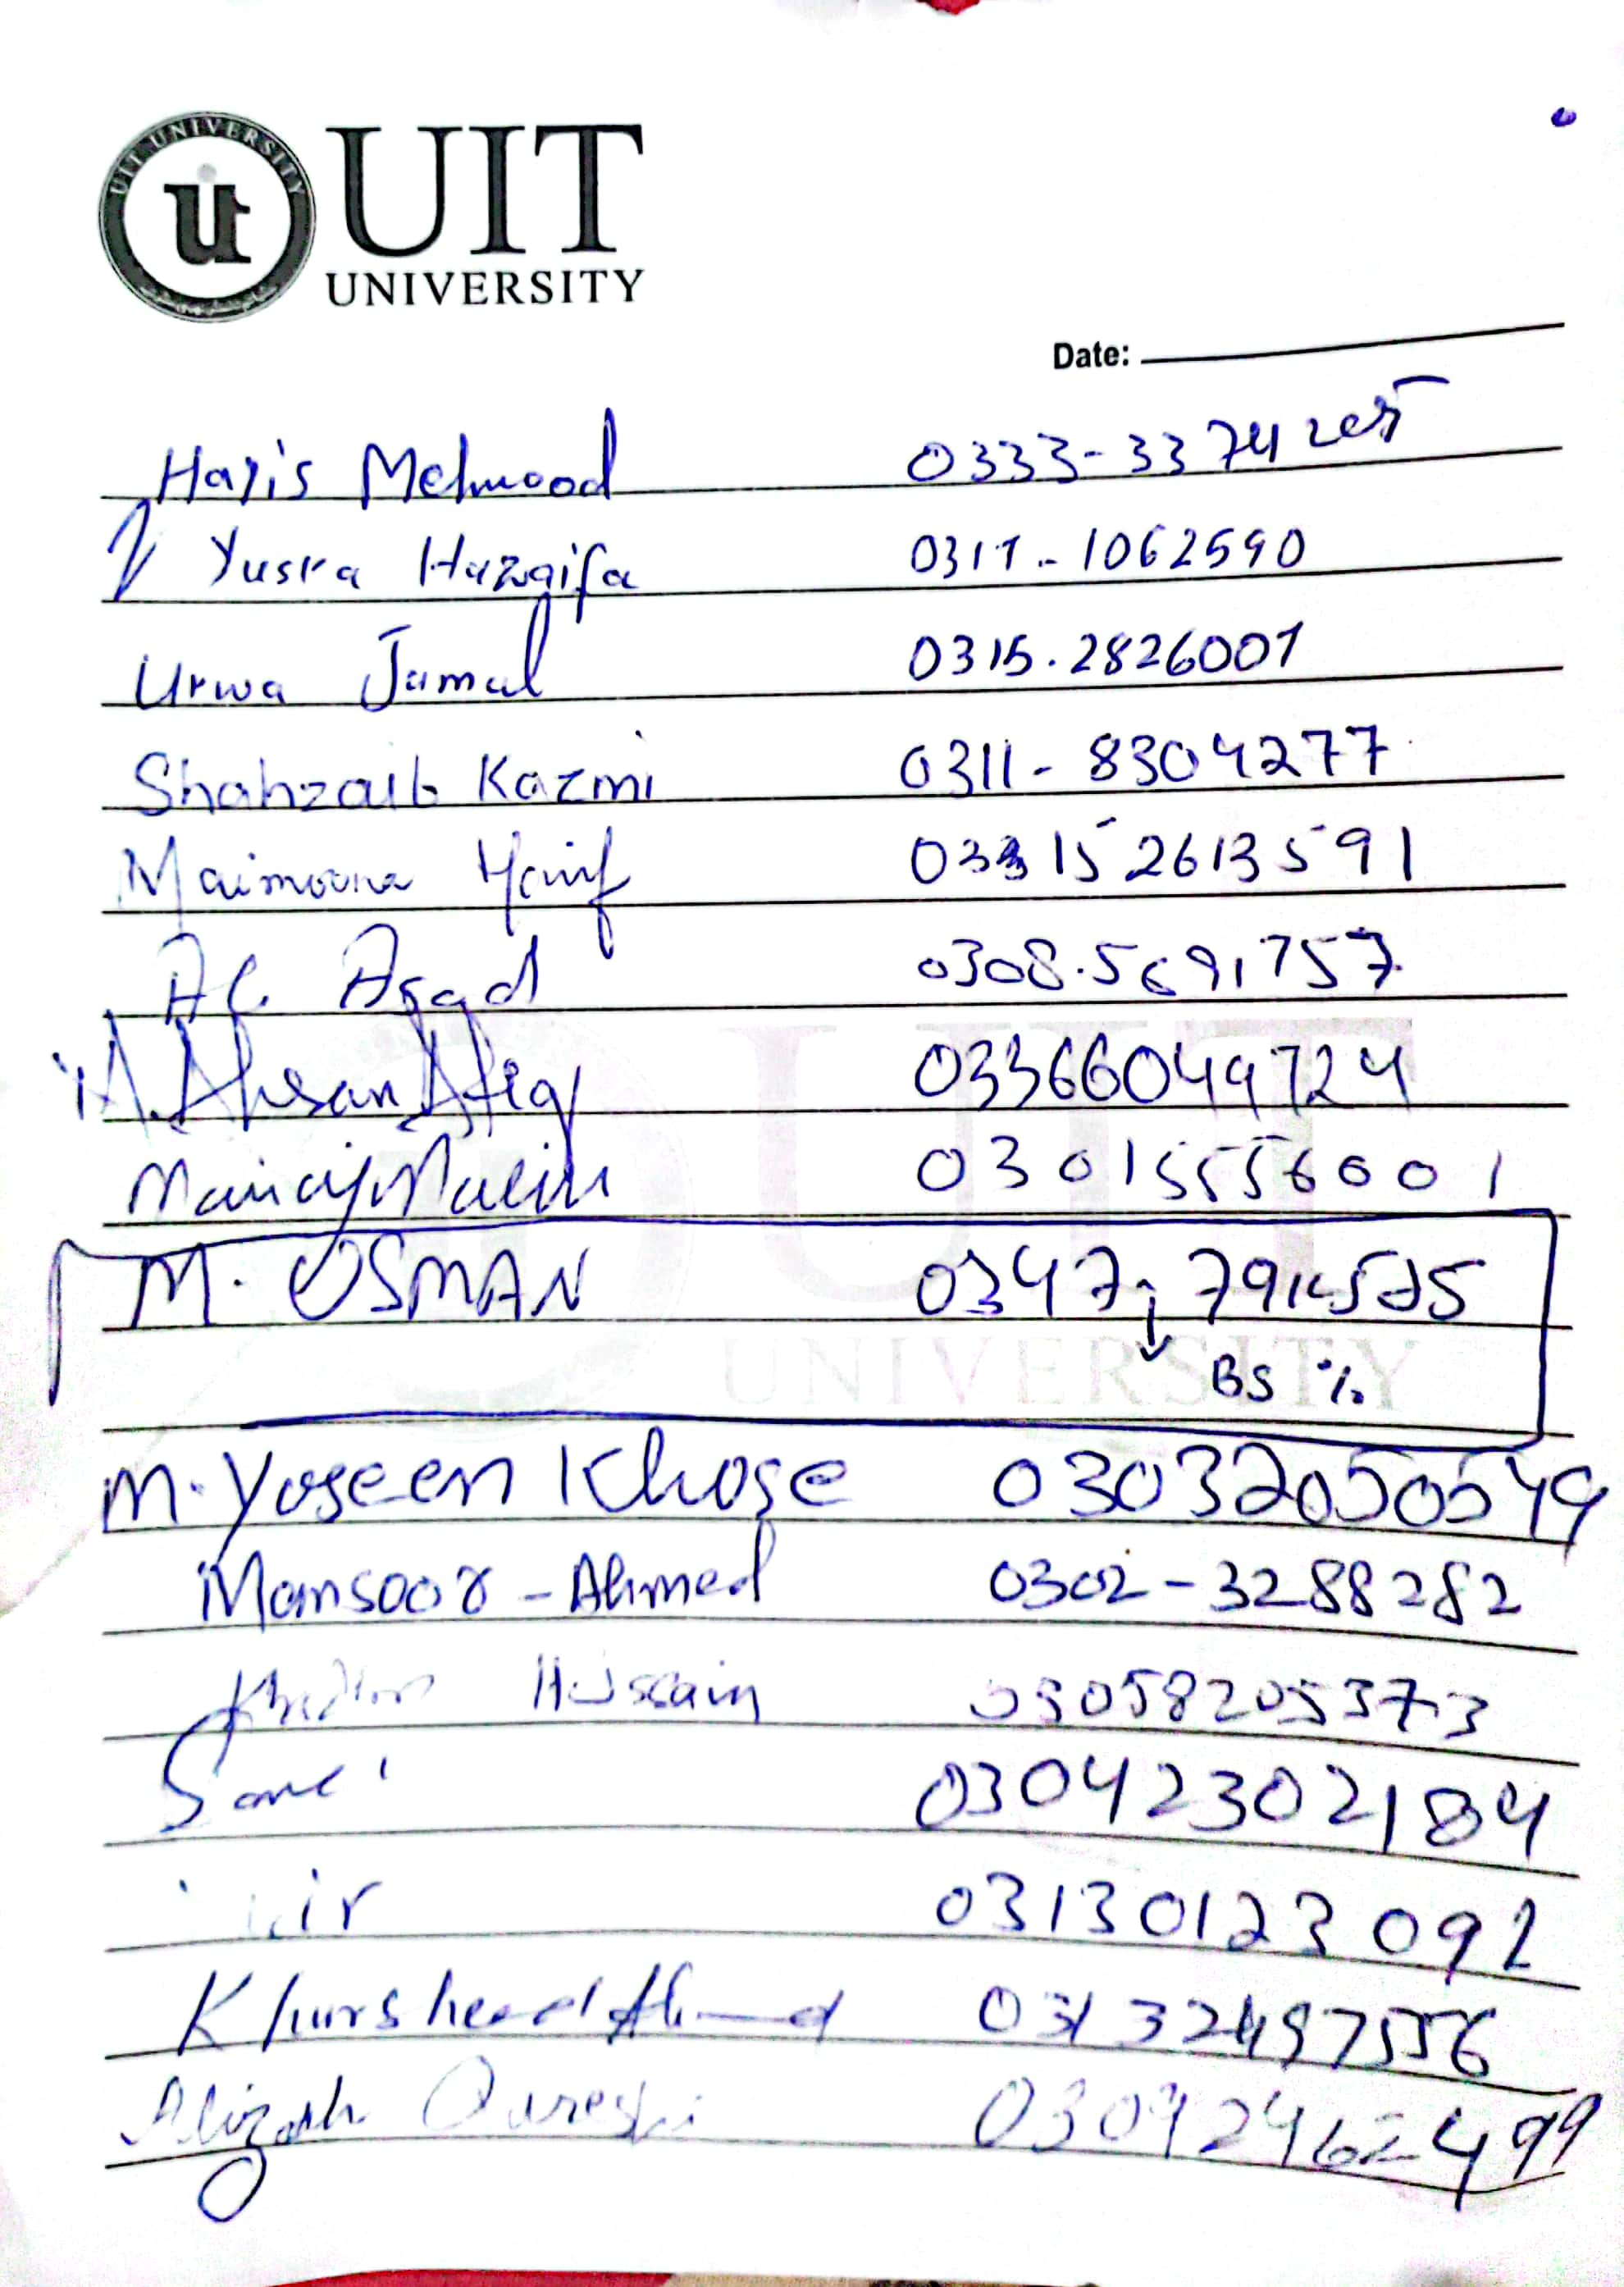 UIT UNIVERSITY
UIT
UNIVERSITY
Date:
Haris Mehmood 0333-3374205
Yusra Huzaifa 0311-1062590
Urwa Jamal 0315.2826001
Shahzaib Kazmi 0311-8304277
Maimoona Hanif 15 2613591
Asad 0308.5691757
M. Ahsan Atiq 03366049724
03015556001
M. OSMAN 0347
BS %
M. Yaseen Khose 03032050549
Mansoor - Ahmed 0302-3288282
Hussain 03058205373
03042302184
03130123091
Khursheed Ahmed
Alizah Qureshi